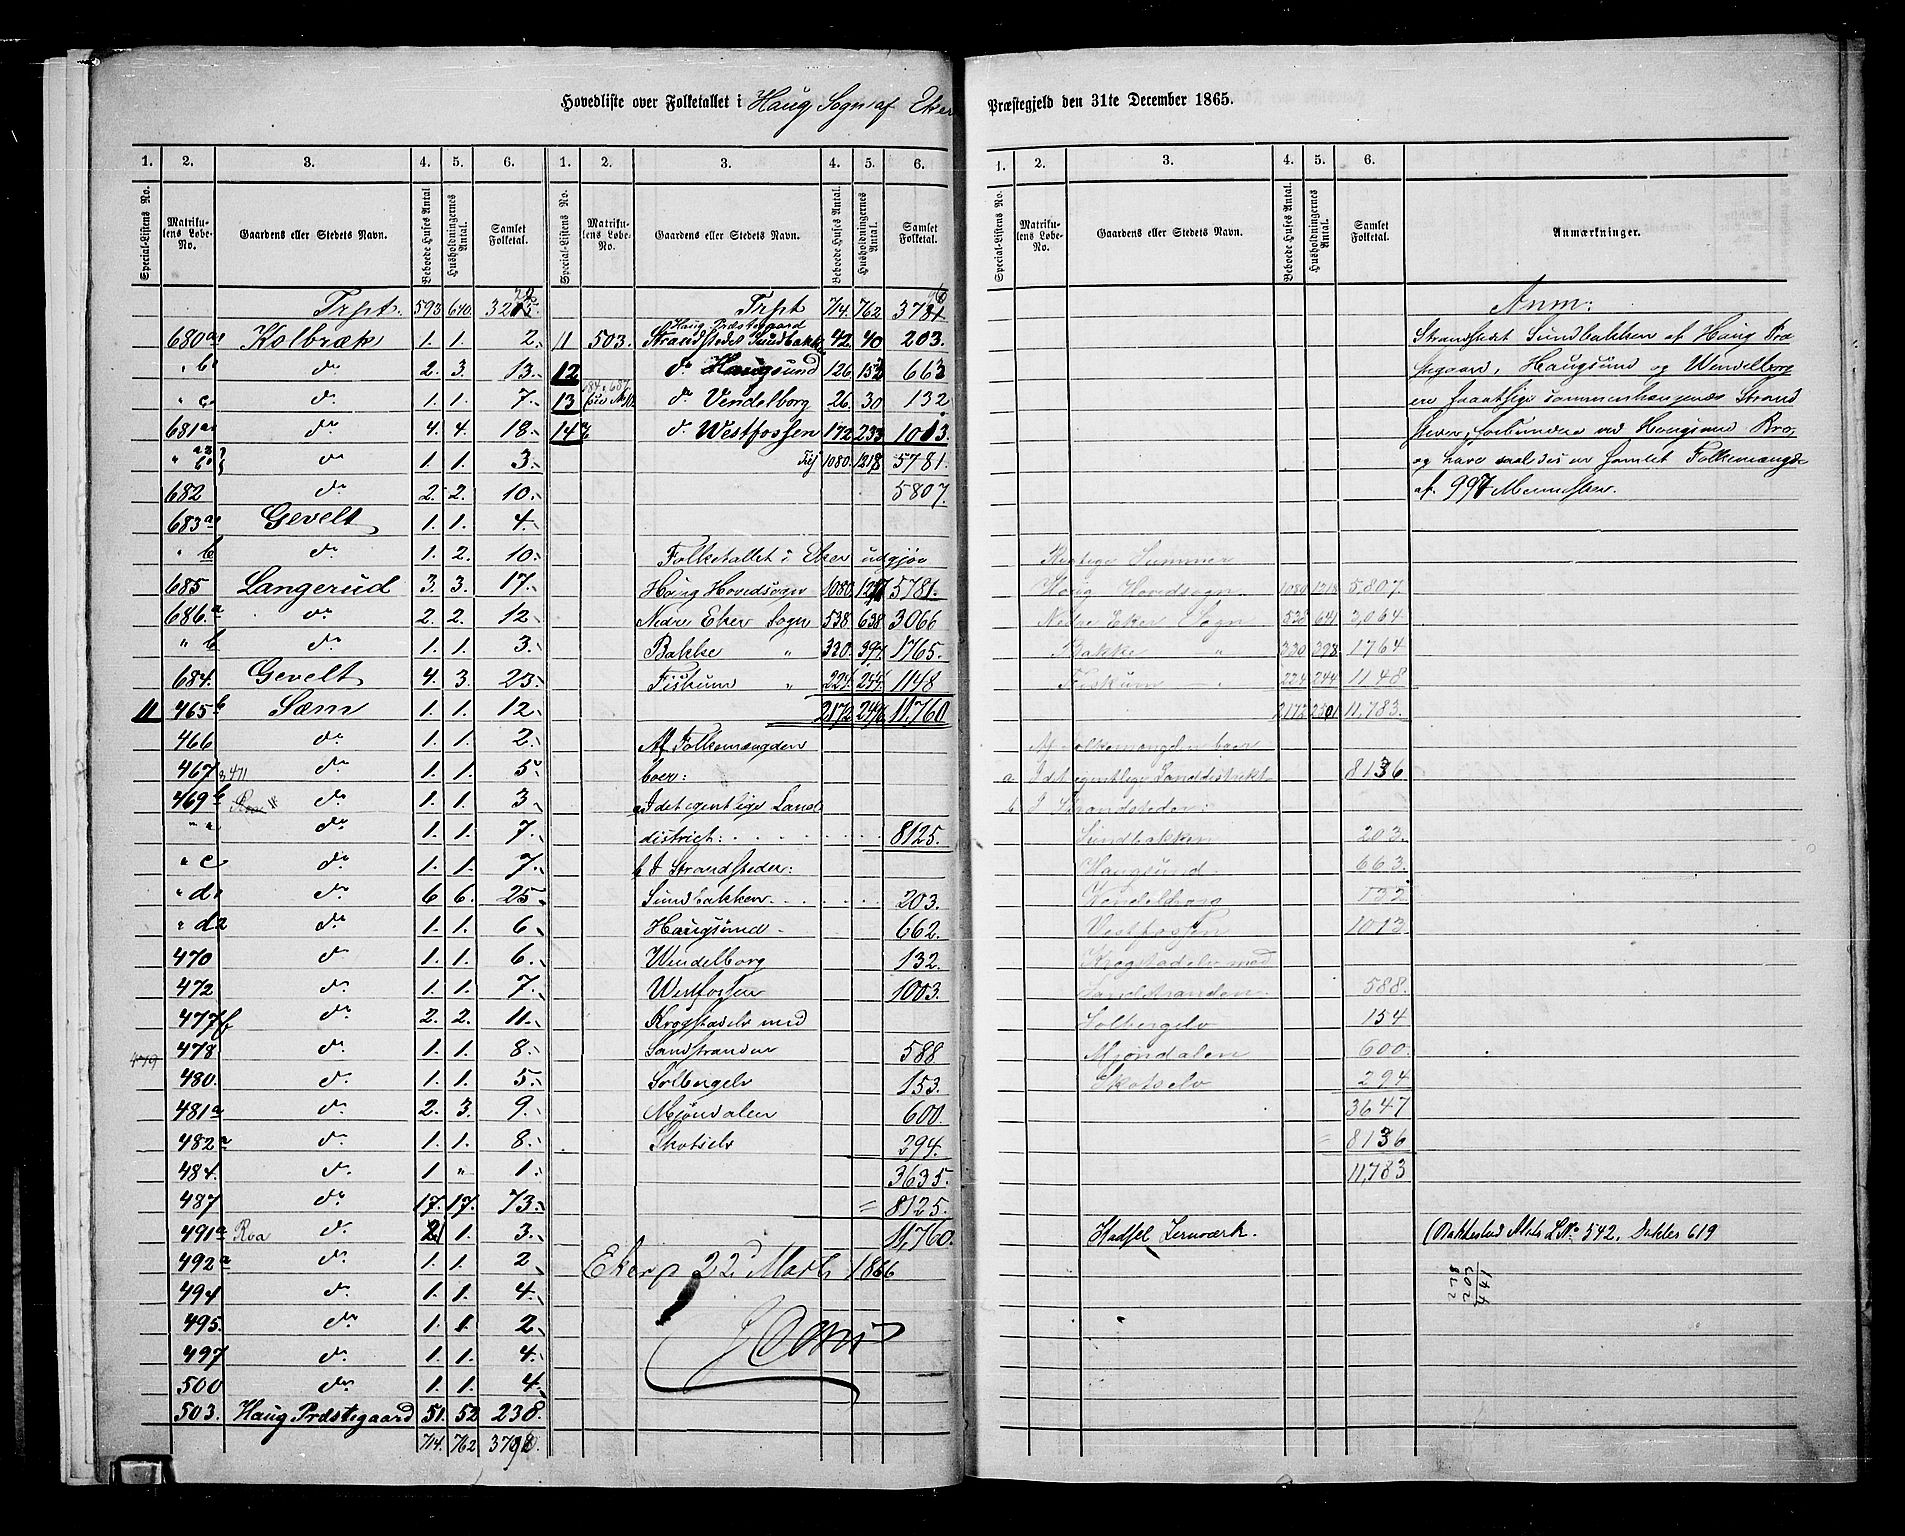 Hovedliste over Folketallet i Haug Sogn af Eker
Præstegjeld den 31te December 1865.
1. 2. 3. 4. 5. 6. 1. 2. 3. 4. 5. 6.
Special-Listens No. Matrikulens Løbe-No. Gaardens eller Stedets Navn. Beboede Huses Antal. Husholdningernes Antal. Samlet Folketal. Special-Listens No. Matrikulens Løbe-No. Gaardens eller Stedets Navn. Beboede Huses Antal. Husholdningernes Antal. Samlet Folketal.
Trpt. 593 640.
680 a Kolbræk 1. 1. 2.
" b do 2. 3. 13.
" c do 1. 1. 7.
681 a do 4. 4. 18.
do 1. 1. 3.
682 do 2. 2. 10.
683 a Gevelt 1. 1. 4.
" b do 1. 2. 10.
685 Langerud 3. 3. 17.
686 a do 2. 2. 12.
" b do 1. 1. 3.
684. Gevelt 4. 3. 23.
11 465 b Sæm 1. 1. 12.
466 do 1. 1. 2.
467 & 471 do 1. 1. 5.
469 b do 1. 1. 3.
" a do 1. 1. 7.
" c do 1. 1. 7.
" d1 do 6 6. 25.
" d2 do 1. 1. 6
470 do 1. 1. 6.
472 do 1. 1. 7.
477 f do 2. 2. 11.
478 do 1. 1. 8.
479
480. do 1. 1. 5.
481 a do 2. 3. 9.
482 a do 1. 1. 8.
484. do 1 " 1.
487 do 17. 17. 73.
491 a Roa do 2 1. 3.
492 a do 1. 1. 2
494 do 1. 1. 4.
495. do 1. 1. 2
497 do 1. 1. 4.
500 do 1. 1. 4
503. Haug Præstegaard 51. 52 238.
714. 762
Trpt 714. 762
Haug Præstegaard
11 503. Strandstedet Sundbakken 42. 40 203.
12 do Haugsund 126 663
13 do Vendelborg 26. 30 132
14 do Westfossen 172 233 1013.
1080. 1218 5781.
5807.
Folketallet i Eker udgjør
Haug Hovedsogn 1080. 5781.
Nedre Eker Sogn 538 638 3066
Bakke " 330. 397 1765.
Fiskum " 224. 244. 1148
2172 11,760
Af Folkemængden
boer:
a I det egentlige Land
district: 8125.
b I Strandsteder:
Sundbakken 203.
Haugsund 662.
Wendelborg 132
Westfossen 1003.
Krogstadelv med
Sandstranden 588
Solbergelv 153.
Mjøndalen 600.
Skotselv 294.
3635.
= 8125.
11,760.
Eker p 22 Marts 1866
1. 2. 3. 4. 5. 6.
Special-Listens No. Matrikulens Løbe-No. Gaardens eller Stedets Navn. Beboede Huses Antal. Husholdningernes Antal. Samlet Folketal. Anmærkninger.
Anm:
Strandstedet Sundbakken af Haug Præ
stegaard, Haugsund og Wendelborg
ere samtlige sammenhængende Strand
steder, forbundne ved Haugsund Bro,
og have saaledes en samlet Folkemængde
af 997 Mennesker.
Rigtige Summer
Haug Hovedsogn 1080 1218 5807.
Nedre Eker Sogn 538 641 3,064.
Bakke " 330 398 1764
Fiskum " 224 244 1148
2172 2501 11,783.
Af Folkemængden boer
a I det egentlige Landdistrikt 8136
b I Strandsteder:
Sundbakken 203.
Haugsund 663.
Wendelborg 132
Vestfossen 1013.
Krogstadelv med
Sandstranden 588.
Solbergelv 154
Mjøndalen 600.
Skotselv 294
3647
= 8136
11,783
Hadsel Jernværk. (Bakkestad L.No. 542. 619